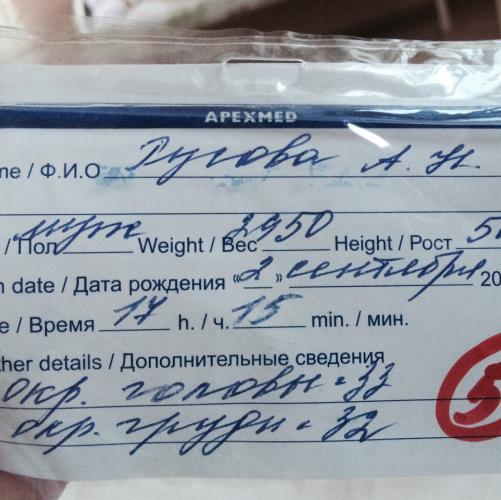 APEXMED
ne / Ф.И.О Гусова А. Н.
/ Пол муж Weight / Вес 2950 Height / Рост 5
n date / Дата рождения «2» сентября 20
e / Время 17 h. / ч. 15 min. / мин.
ther details / Дополнительные сведения
окр. головы = 33
окр. груди = 32
5